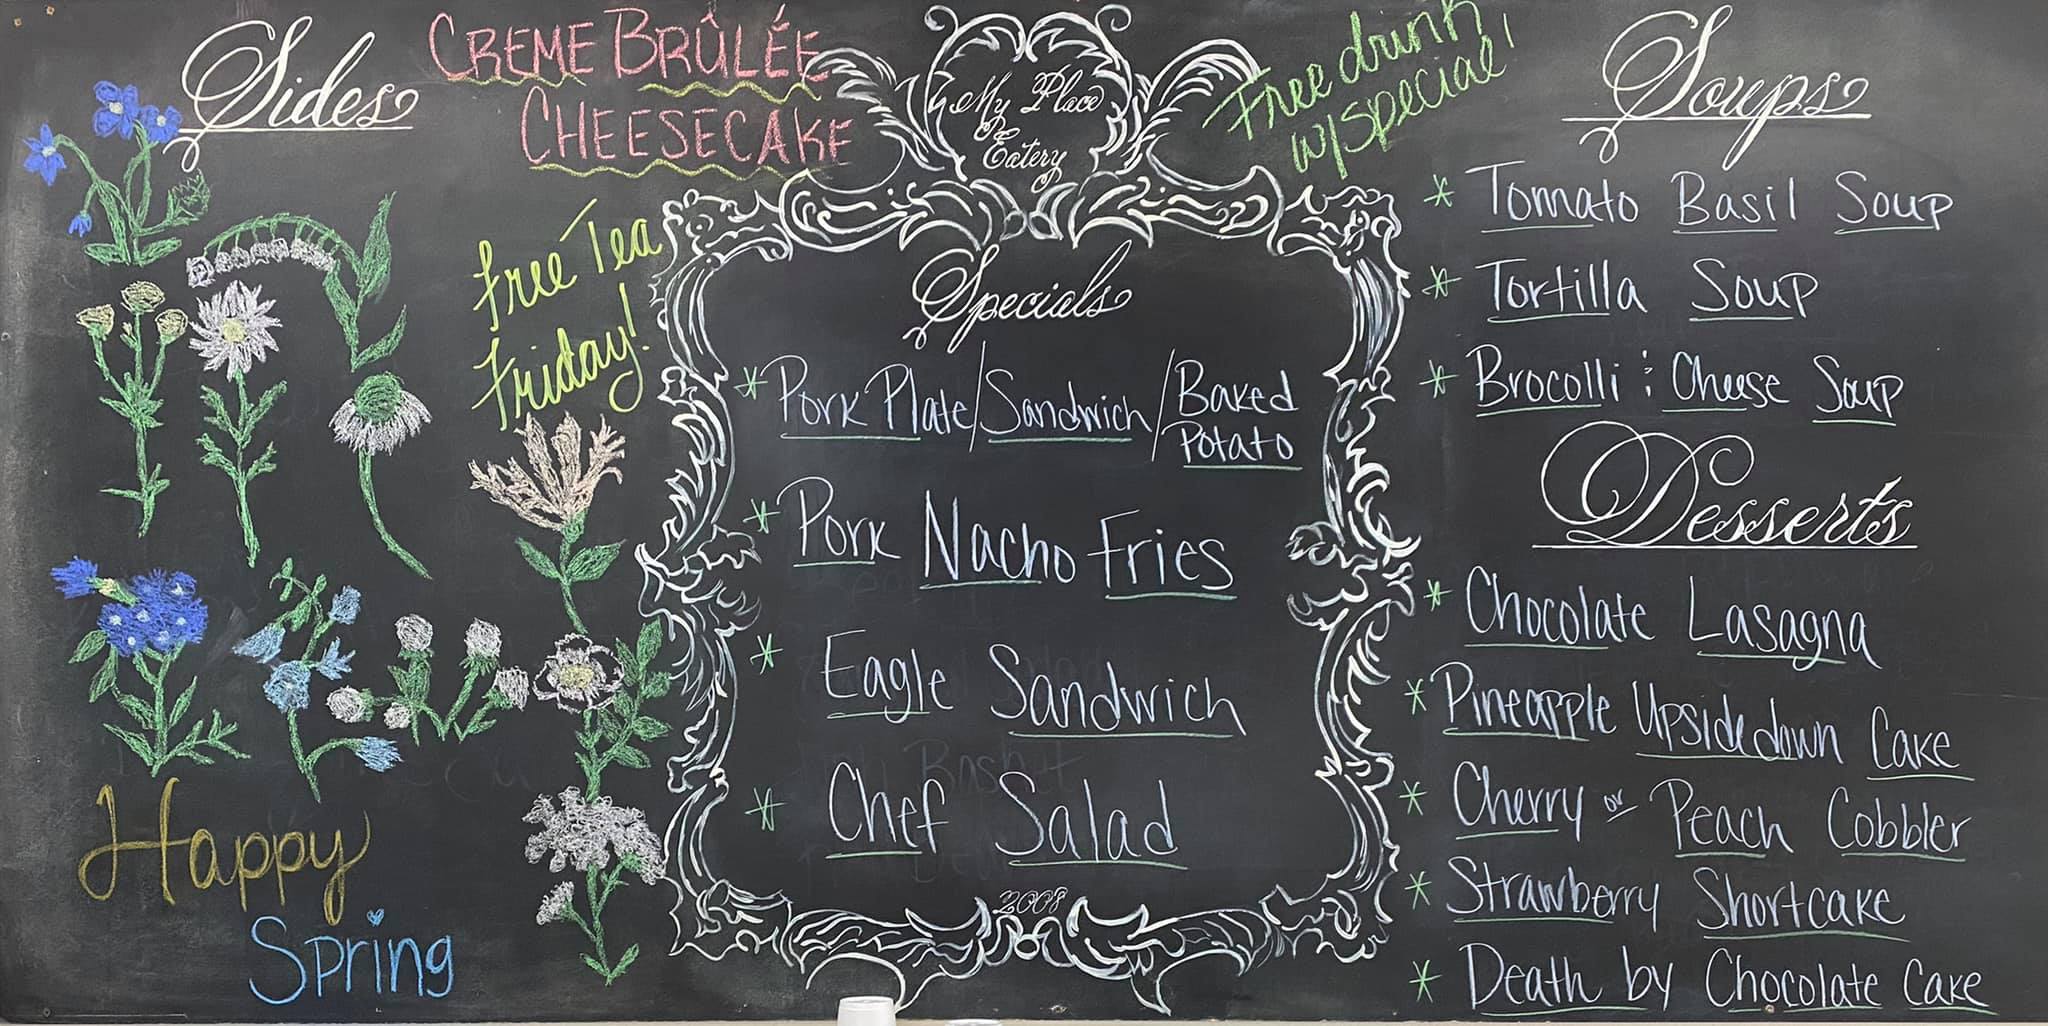 Sides
CREME BRÛLÉE
CHEESECAKE
Free Tea
Friday!
Happy
Spring
My Place
Eatery
Free drink
w/special!
Specials
* Pork Plate/Sandwich/Baked
Potato
* Pork Nacho Fries
* Eagle Sandwich
* Chef Salad
2008
Soups
* Tomato Basil Soup
* Tortilla Soup
* Brocolli & Cheese Soup
Desserts
* Chocolate Lasagna
* Pineapple Upsidedown Cake
* Cherry or Peach Cobbler
* Strawberry Shortcake
* Death by Chocolate Cake